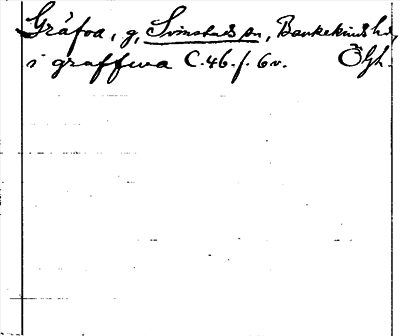 Gräfva, g, Svinstads sn, Bankekinds hd,
i graffwa C.46.f.6v. Ögh.